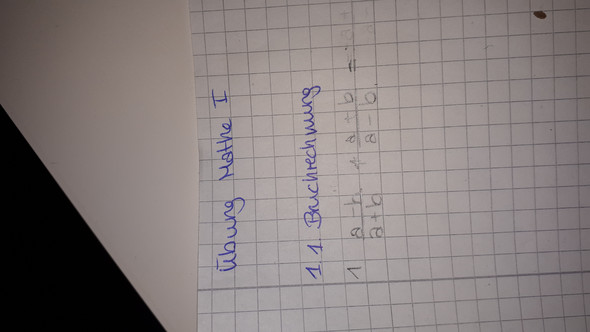 Übung Mathe I
1.1 Bruchrechnung
1 (a-b)/(a+b) + (a+b)/(a-b) =